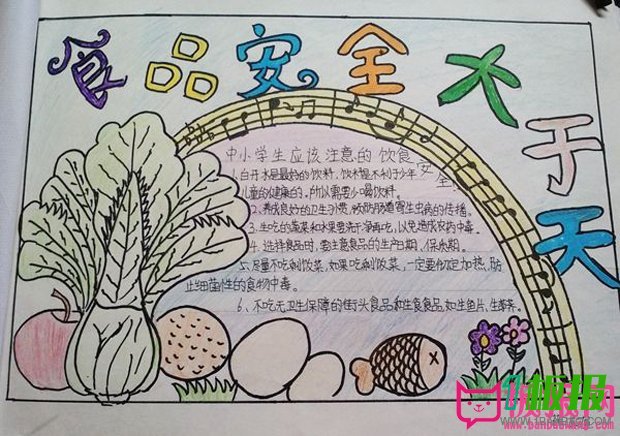 食品安全大于天
中小学生应该注意的饮食安全
1、白开水是最好的饮料,饮料是不利于少年
儿童的健康的,所以需要少喝饮料。
2、养成良好的卫生习惯,预防肠道寄生虫病的传播。
3、生吃的蔬菜和水果要洗干净再吃,以免造成农药中毒。
4、选择食品时,要注意食品的生产日期、保质期。
5、尽量不吃剩饭菜,如果吃剩饭菜,一定要彻底加热,防
止细菌性的食物中毒。
6、不吃无卫生保障的街头食品和生食食品,如生鱼片、生荸荠。
板报网